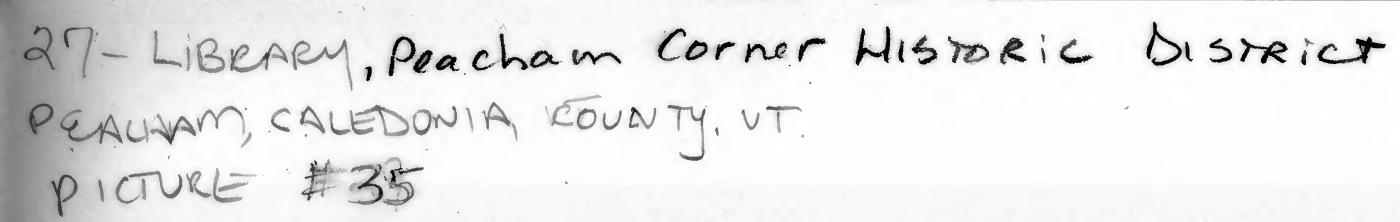 27- LIBRARY, Peacham Corner HISTORIC DISTRICT
PEACHAM, CALEDONIA, COUNTY, VT.
PICTURE #35